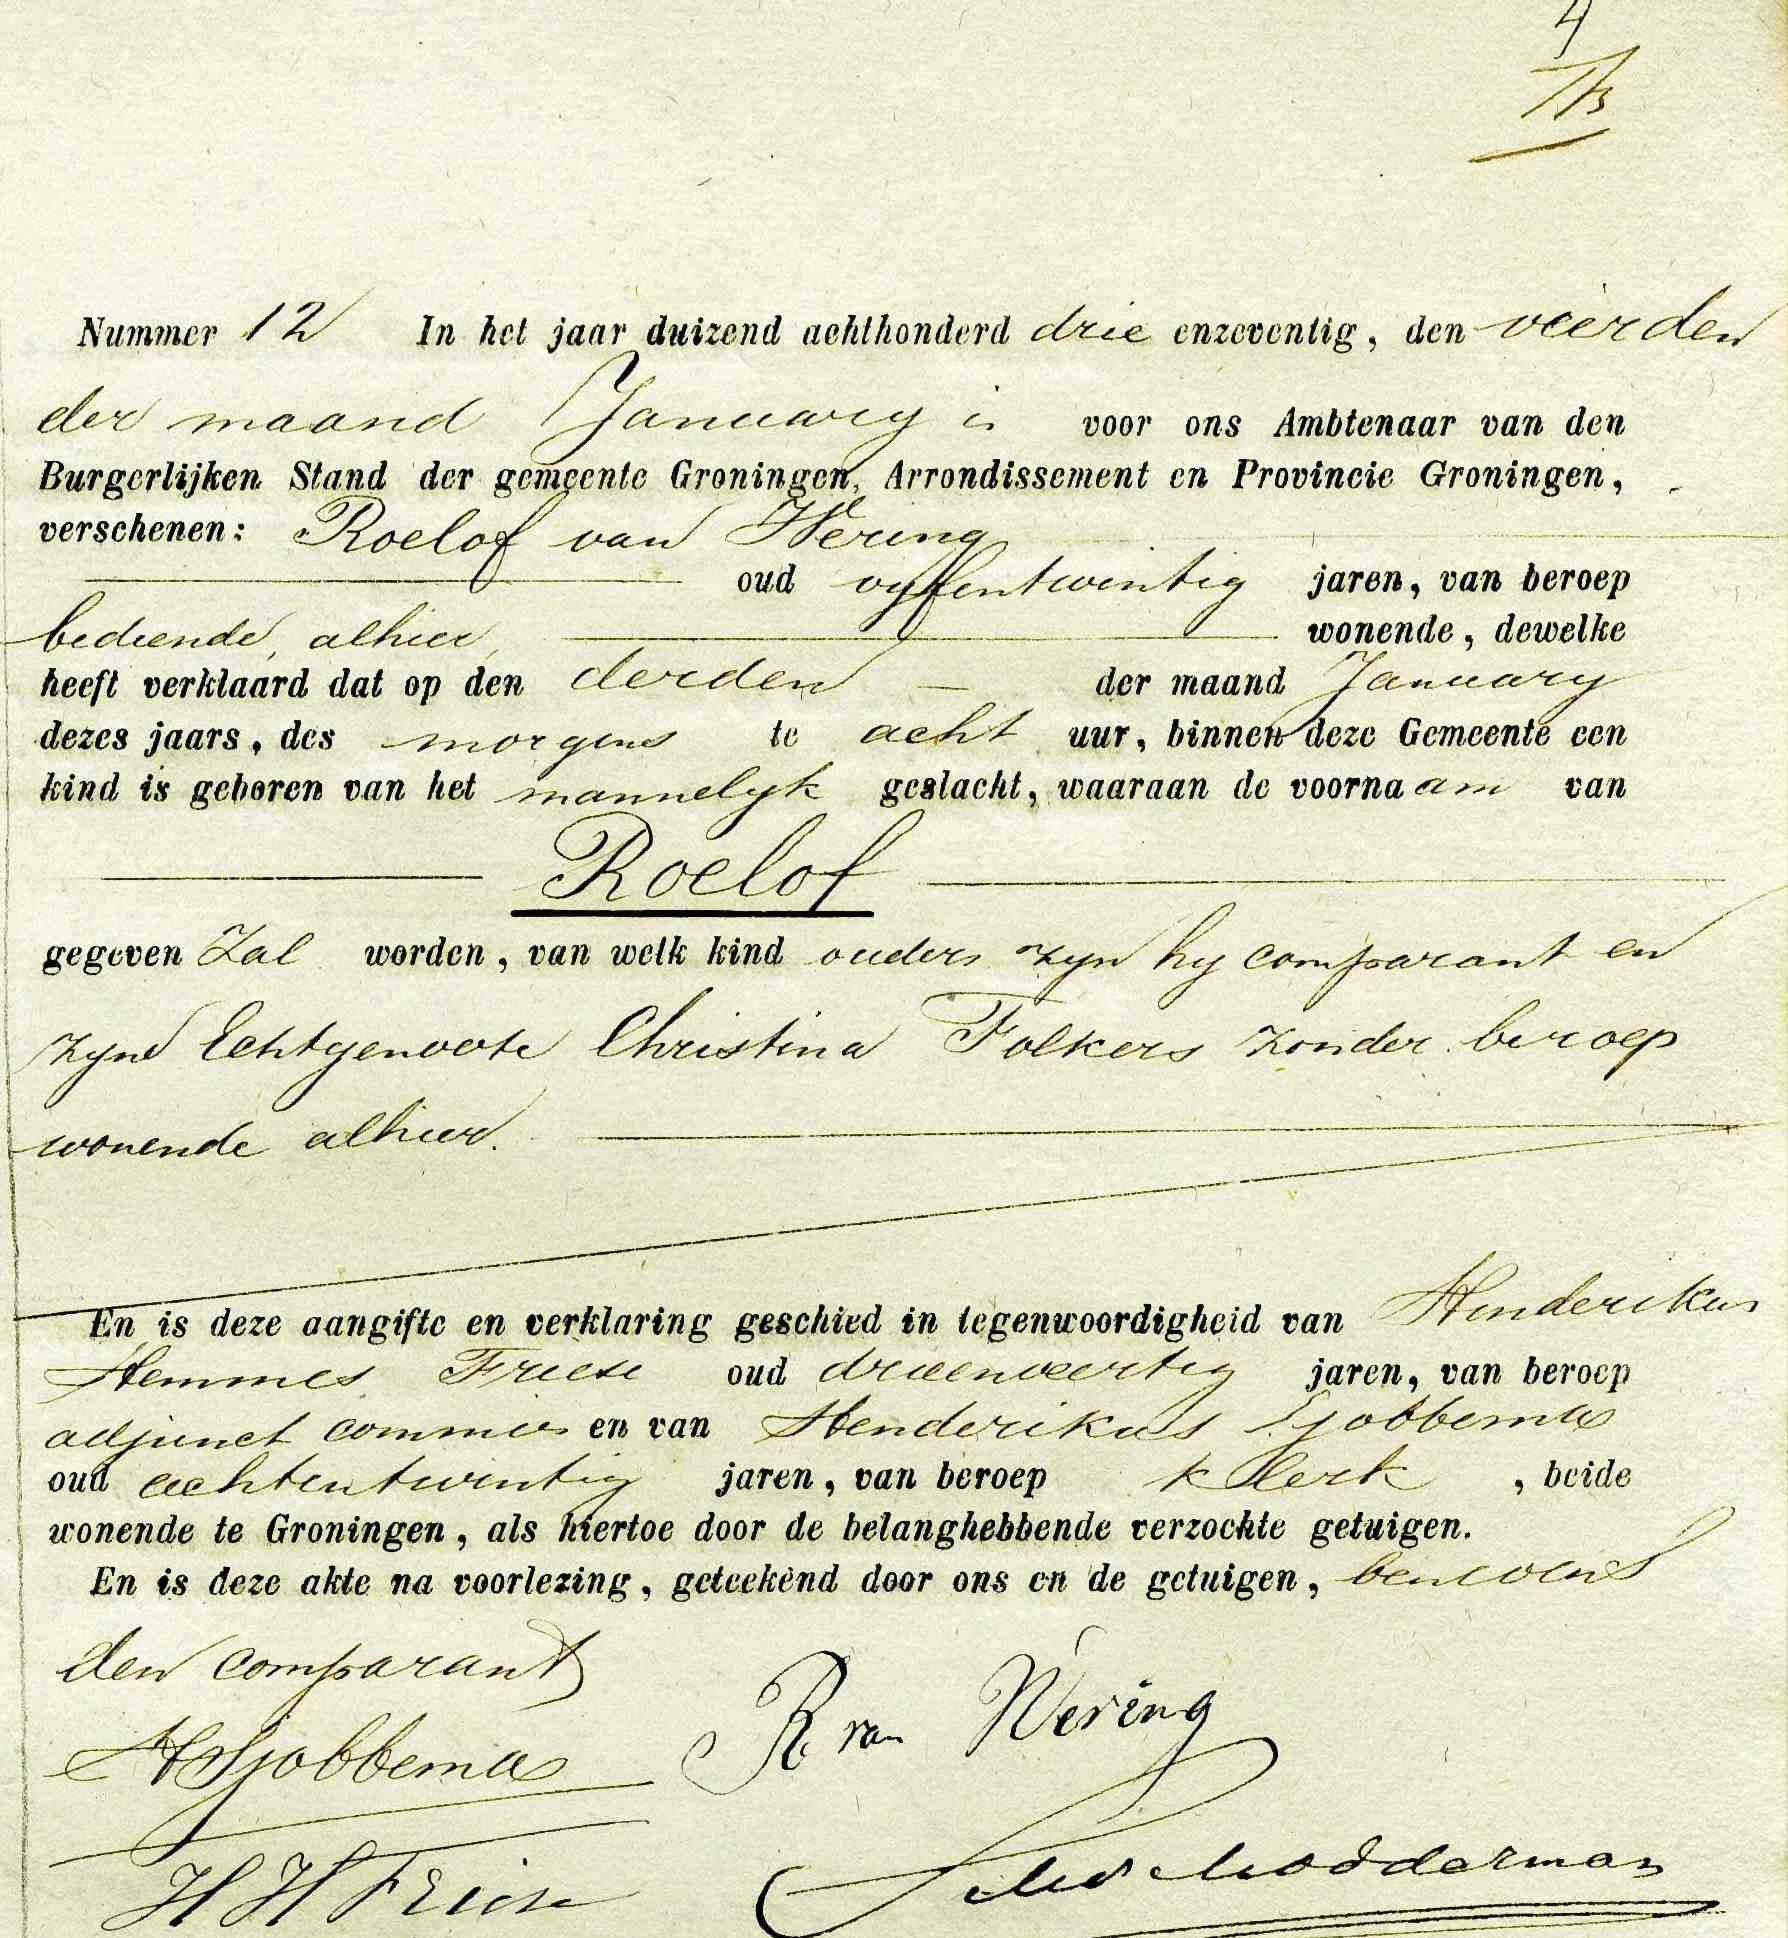 4
Nummer 12 In het jaar duizend achthonderd drie enzeventig, den vierden
der maand January is voor ons Ambtenaar van den
Burgerlijken Stand der gemeente Groningen, Arrondissement en Provincie Groningen,
verschenen: Roelof van Wering
oud vyfentwintig jaren, van beroep
bediende, alhier, wonende, dewelke
heeft verklaard dat op den derden der maand January
dezes jaars, des morgens te acht uur, binnen deze Gemeente een
kind is geboren van het mannelyk geslacht, waaraan de voornaam van
Roelof
gegeven zal worden, van welk kind ouders zyn hy comparant en
zyne Echtgenoote Christina Folkers zonder beroep
wonende alhier.
En is deze aangifte en verklaring geschied in tegenwoordigheid van Henderikus
Hemmes Friese oud drieenveertig jaren, van beroep
adjunct commies en van Henderikus Sjobbema
oud achtentwintig jaren, van beroep klerk, beide
wonende te Groningen, als hiertoe door de belanghebbende verzochte getuigen.
En is deze akte na voorlezing, geteekend door ons en de getuigen, benevens
den comparant
R van Wering
HSjobbema
H H Friese
Modderman